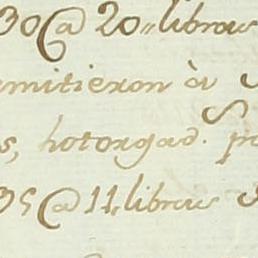 30@ 20,, libras
mitieron àv S
s, hotorgad. po
95@ 11,, libras